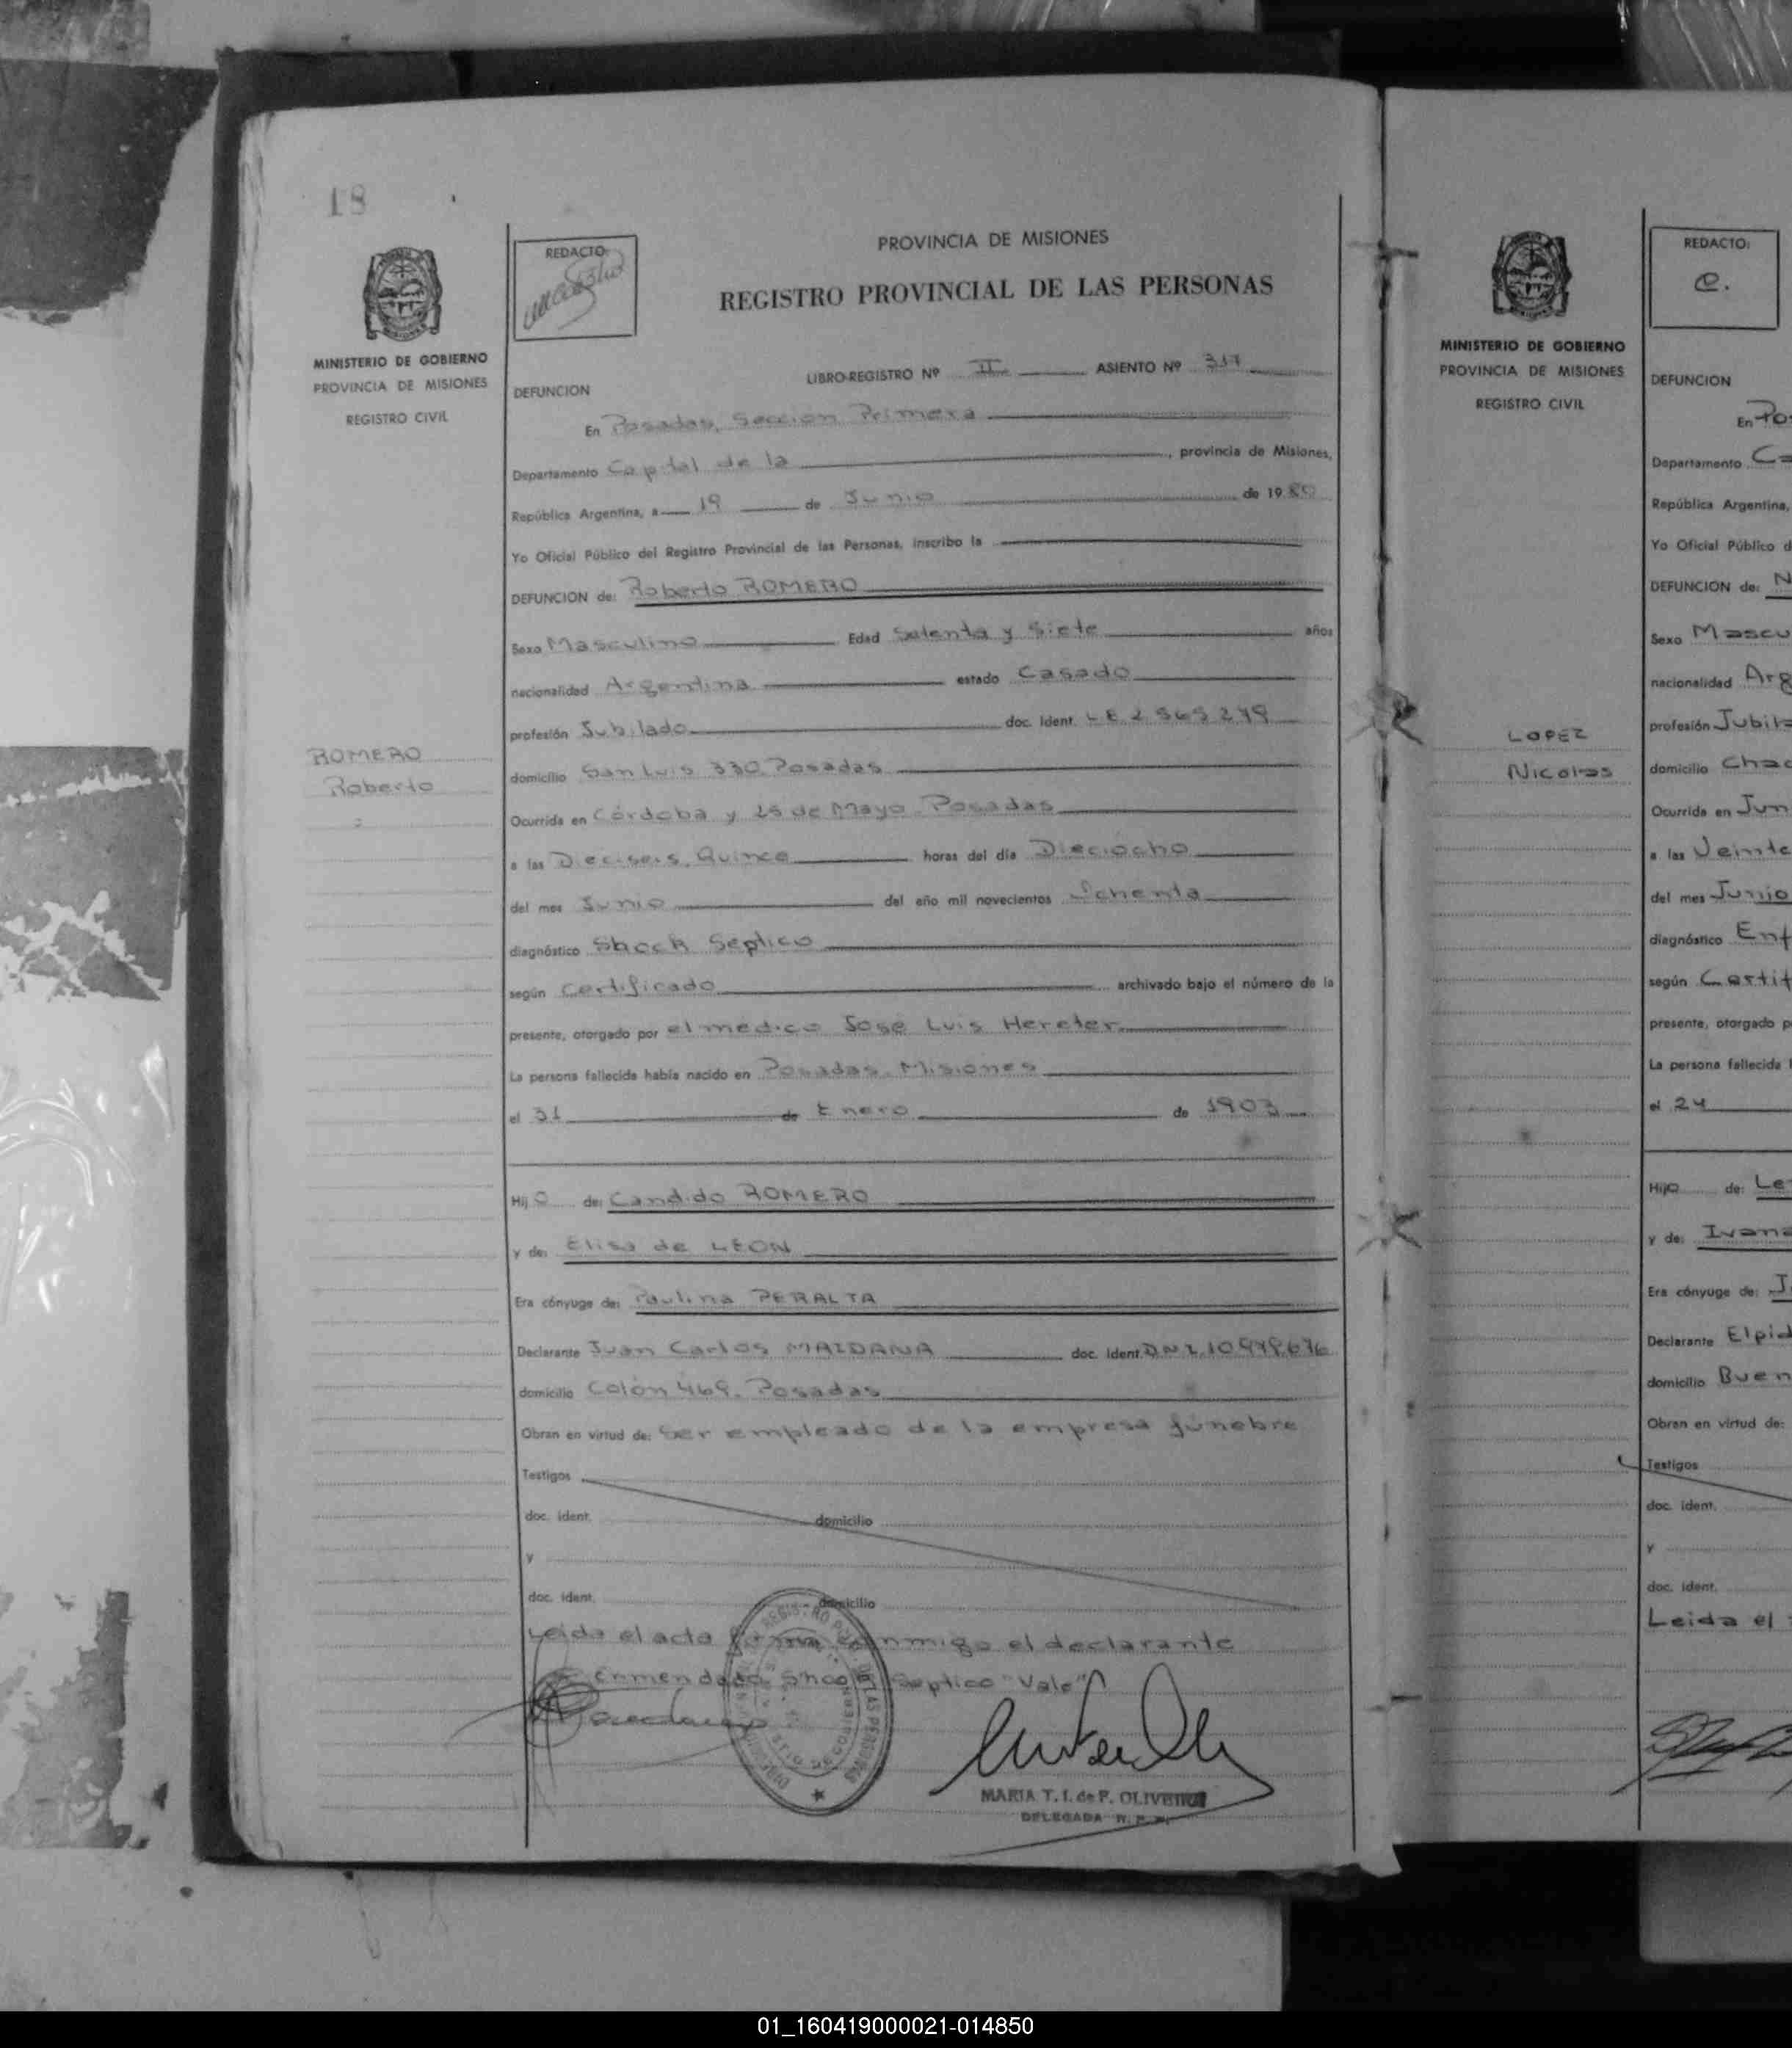 18
MINISTERIO DE GOBIERNO
PROVINCIA DE MISIONES
REGISTRO CIVIL
ROMERO
Roberto
REDACTO:
PROVINCIA DE MISIONES
REGISTRO PROVINCIAL DE LAS PERSONAS
LIBRO-REGISTRO Nº II ASIENTO Nº 317
DEFUNCION
En Posadas, Seccion Primera
Departamento Capital de la, provincia de Misiones,
República Argentina, a 19 de Junio de 1980
Yo Oficial Público del Registro Provincial de las Personas, inscribo la
DEFUNCION de: Roberto ROMERO
Sexo Masculino Edad Setenta y Siete años
nacionalidad Argentina estado Casado
profesión Jubilado doc. Ident. LE 2.565.279
domicilio San Luis 330. Posadas
Ocurrida en Córdoba y 25 de Mayo. Posadas
a las Dieciseis, Quince horas del día Dieciocho
del mes Junio del año mil novecientos Ochenta
diagnóstico Shock Septico
según Certificado archivado bajo el número de la
presente, otorgado por el medico José Luis Hereter
La persona fallecida había nacido en Posadas. Misiones
el 31 de Enero de 1903
Hijo de: Candido ROMERO
y de: Elisa de LEON
Era cónyuge de: Paulina PERALTA
Declarante Juan Carlos MAIDANA doc. Ident. DNI. 10.979.676
domicilio Colón 469. Posadas
Obran en virtud de: Ser empleado de la empresa fúnebre
Testigos
doc. ident. domicilio
y
doc. ident. domicilio
Leida el acta firma conmigo el declarante
Enmendado Shock Septico "Vale"
MARIA T. I. de P. OLIVEIRA
DELEGADA R. P. P.
MINISTERIO DE GOBIERNO
PROVINCIA DE MISIONES
REGISTRO CIVIL
LOPEZ
Nicolas
REDACTO:
e.
DEFUNCION
En Pos
Departamento Ca
República Argentina,
Yo Oficial Público d
DEFUNCION de: N
Sexo Mascu
nacionalidad Arg
profesión Jubila
domicilio Chac
Ocurrida en Jun
a las Veinte
del mes Junio
diagnóstico Enf
según Certif
presente, otorgado p
La persona fallecida
el 24
Hijo de: Le
y de: Ivana
Era cónyuge de: J
Declarante Elpid
domicilio Buen
Obran en virtud de:
Testigos
doc. ident.
y
doc. ident.
Leida el
01_160419000021-014850